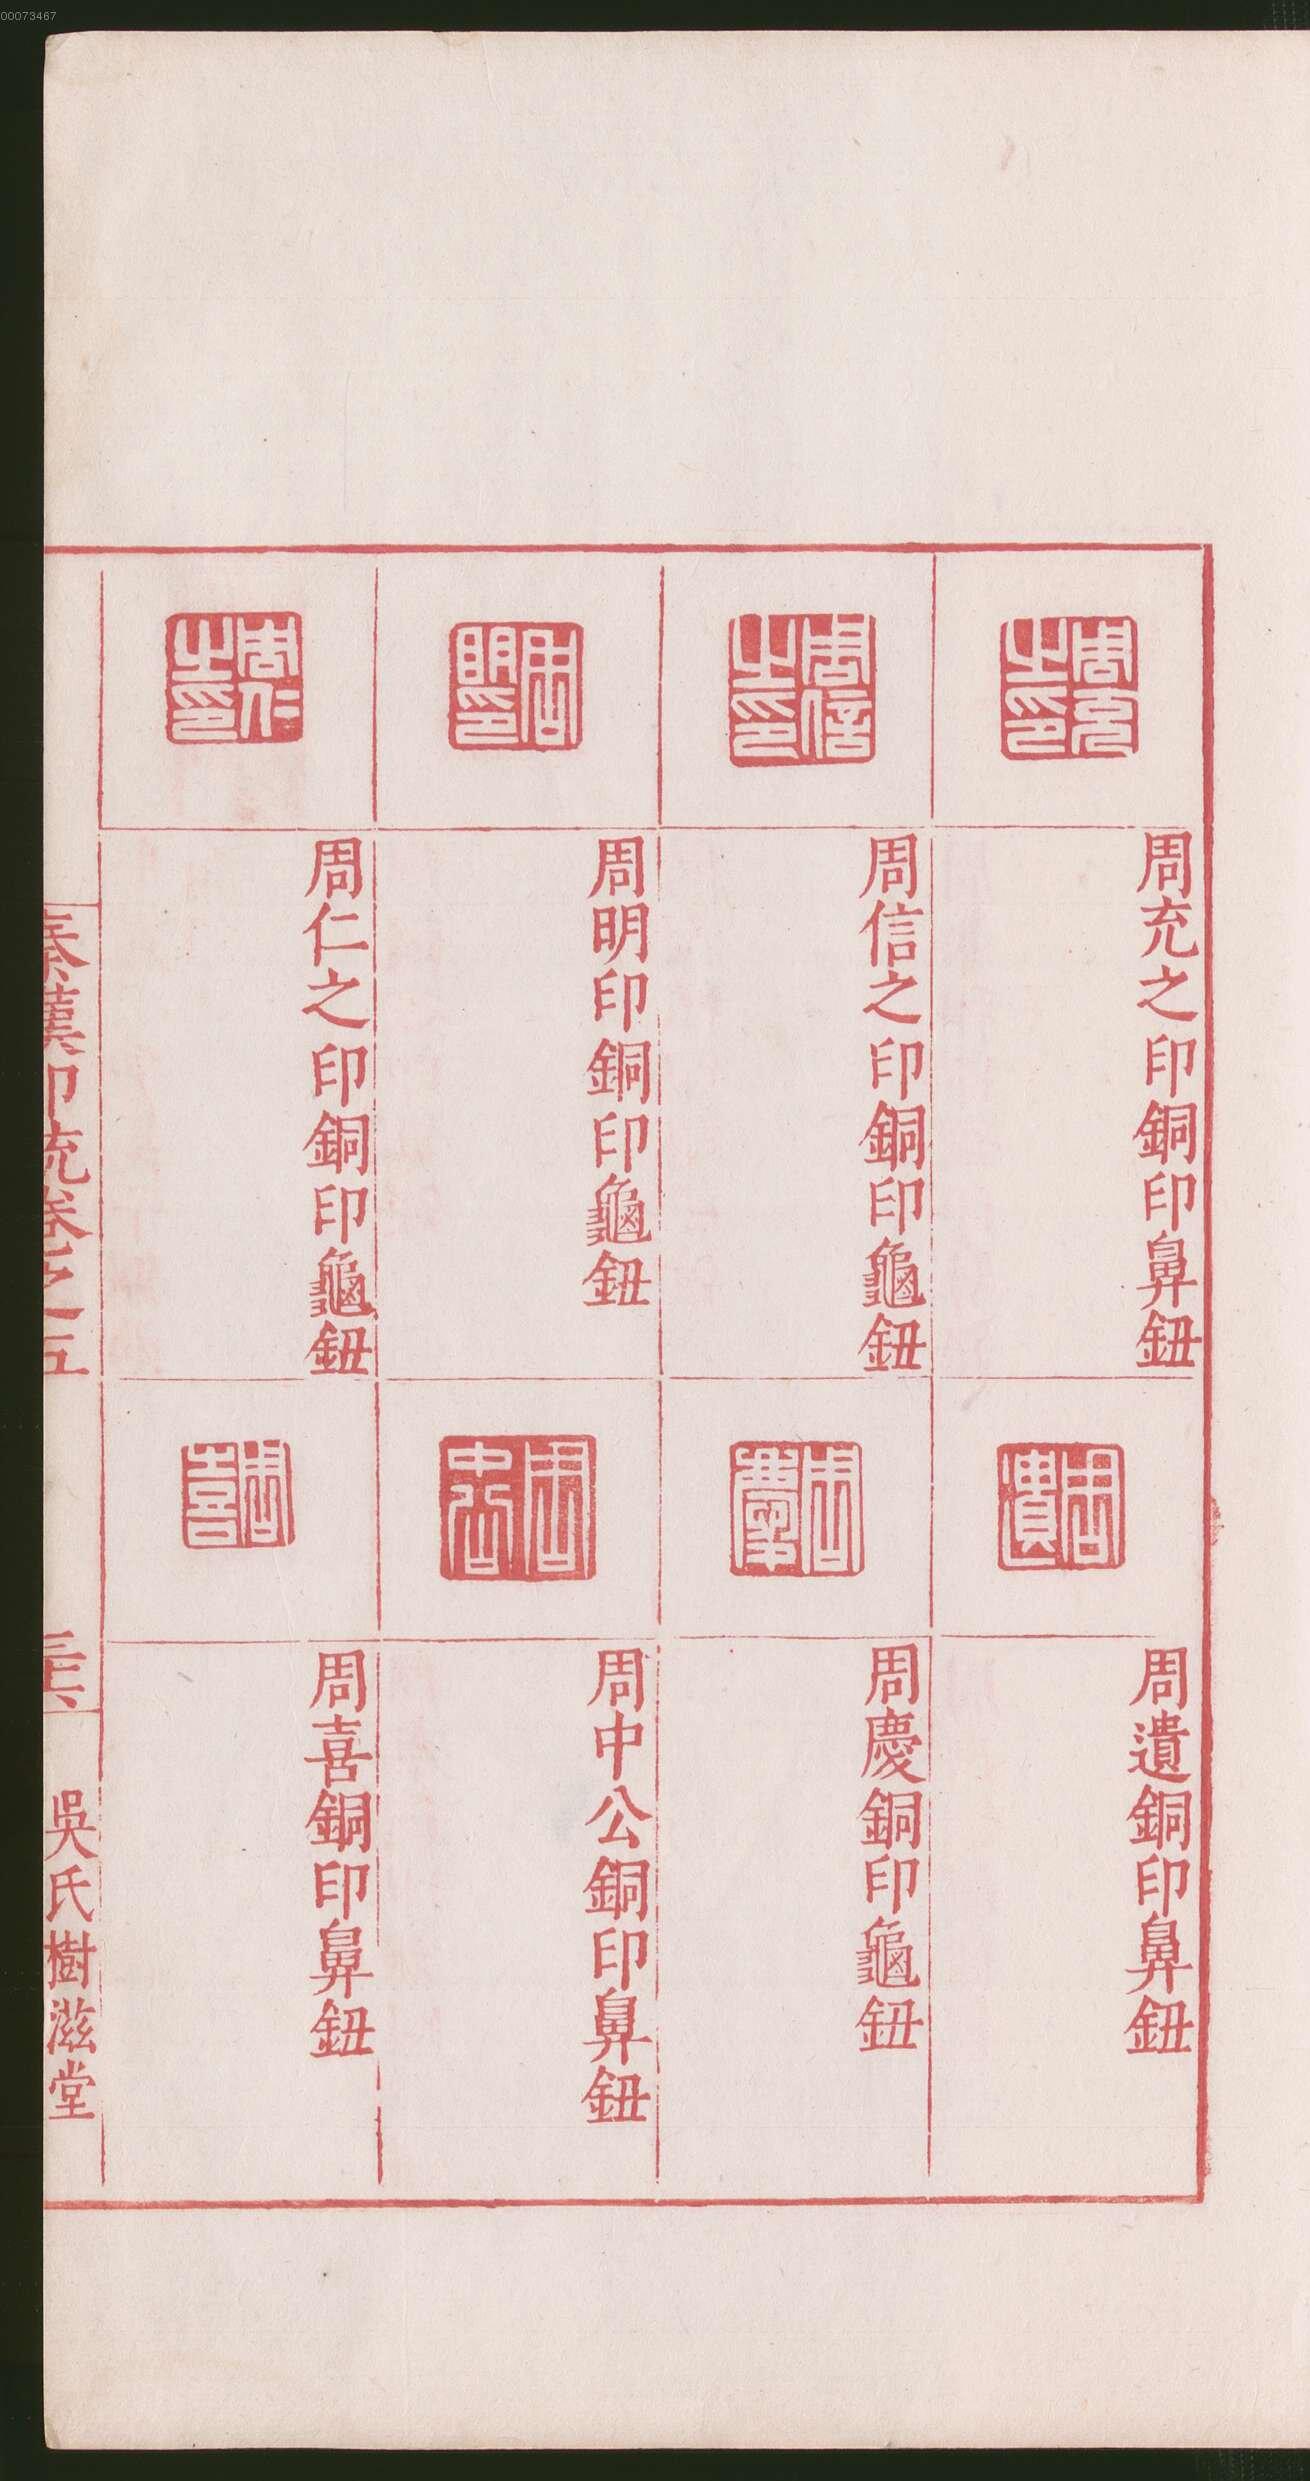 00073467
周充之印
周充之印銅印鼻鈕
周信之印
周信之印銅印龜鈕
周明印
周明印銅印龜鈕
周仁之印
周仁之印銅印龜鈕
周遺
周遺銅印鼻鈕
周慶
周慶銅印龜鈕
周中公
周中公銅印鼻鈕
周喜
周喜銅印鼻鈕
秦漢印統卷之五
吳氏樹滋堂